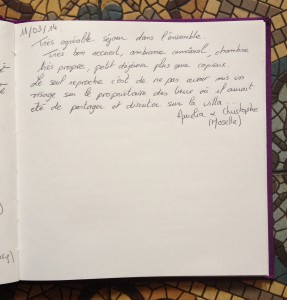 11/03/14
Très agréable séjour dans l'ensemble.
Très bon accueil, ambiance convivial, chambre
très propre, petit déjeuner plus que copieux.
Le seul reproche c'est de ne pas avoir mis un
visage sur le propriétaire des lieux où il aurait
été de partager et discuter sur la villa...
Aurélia & Christophe
(Moselle)